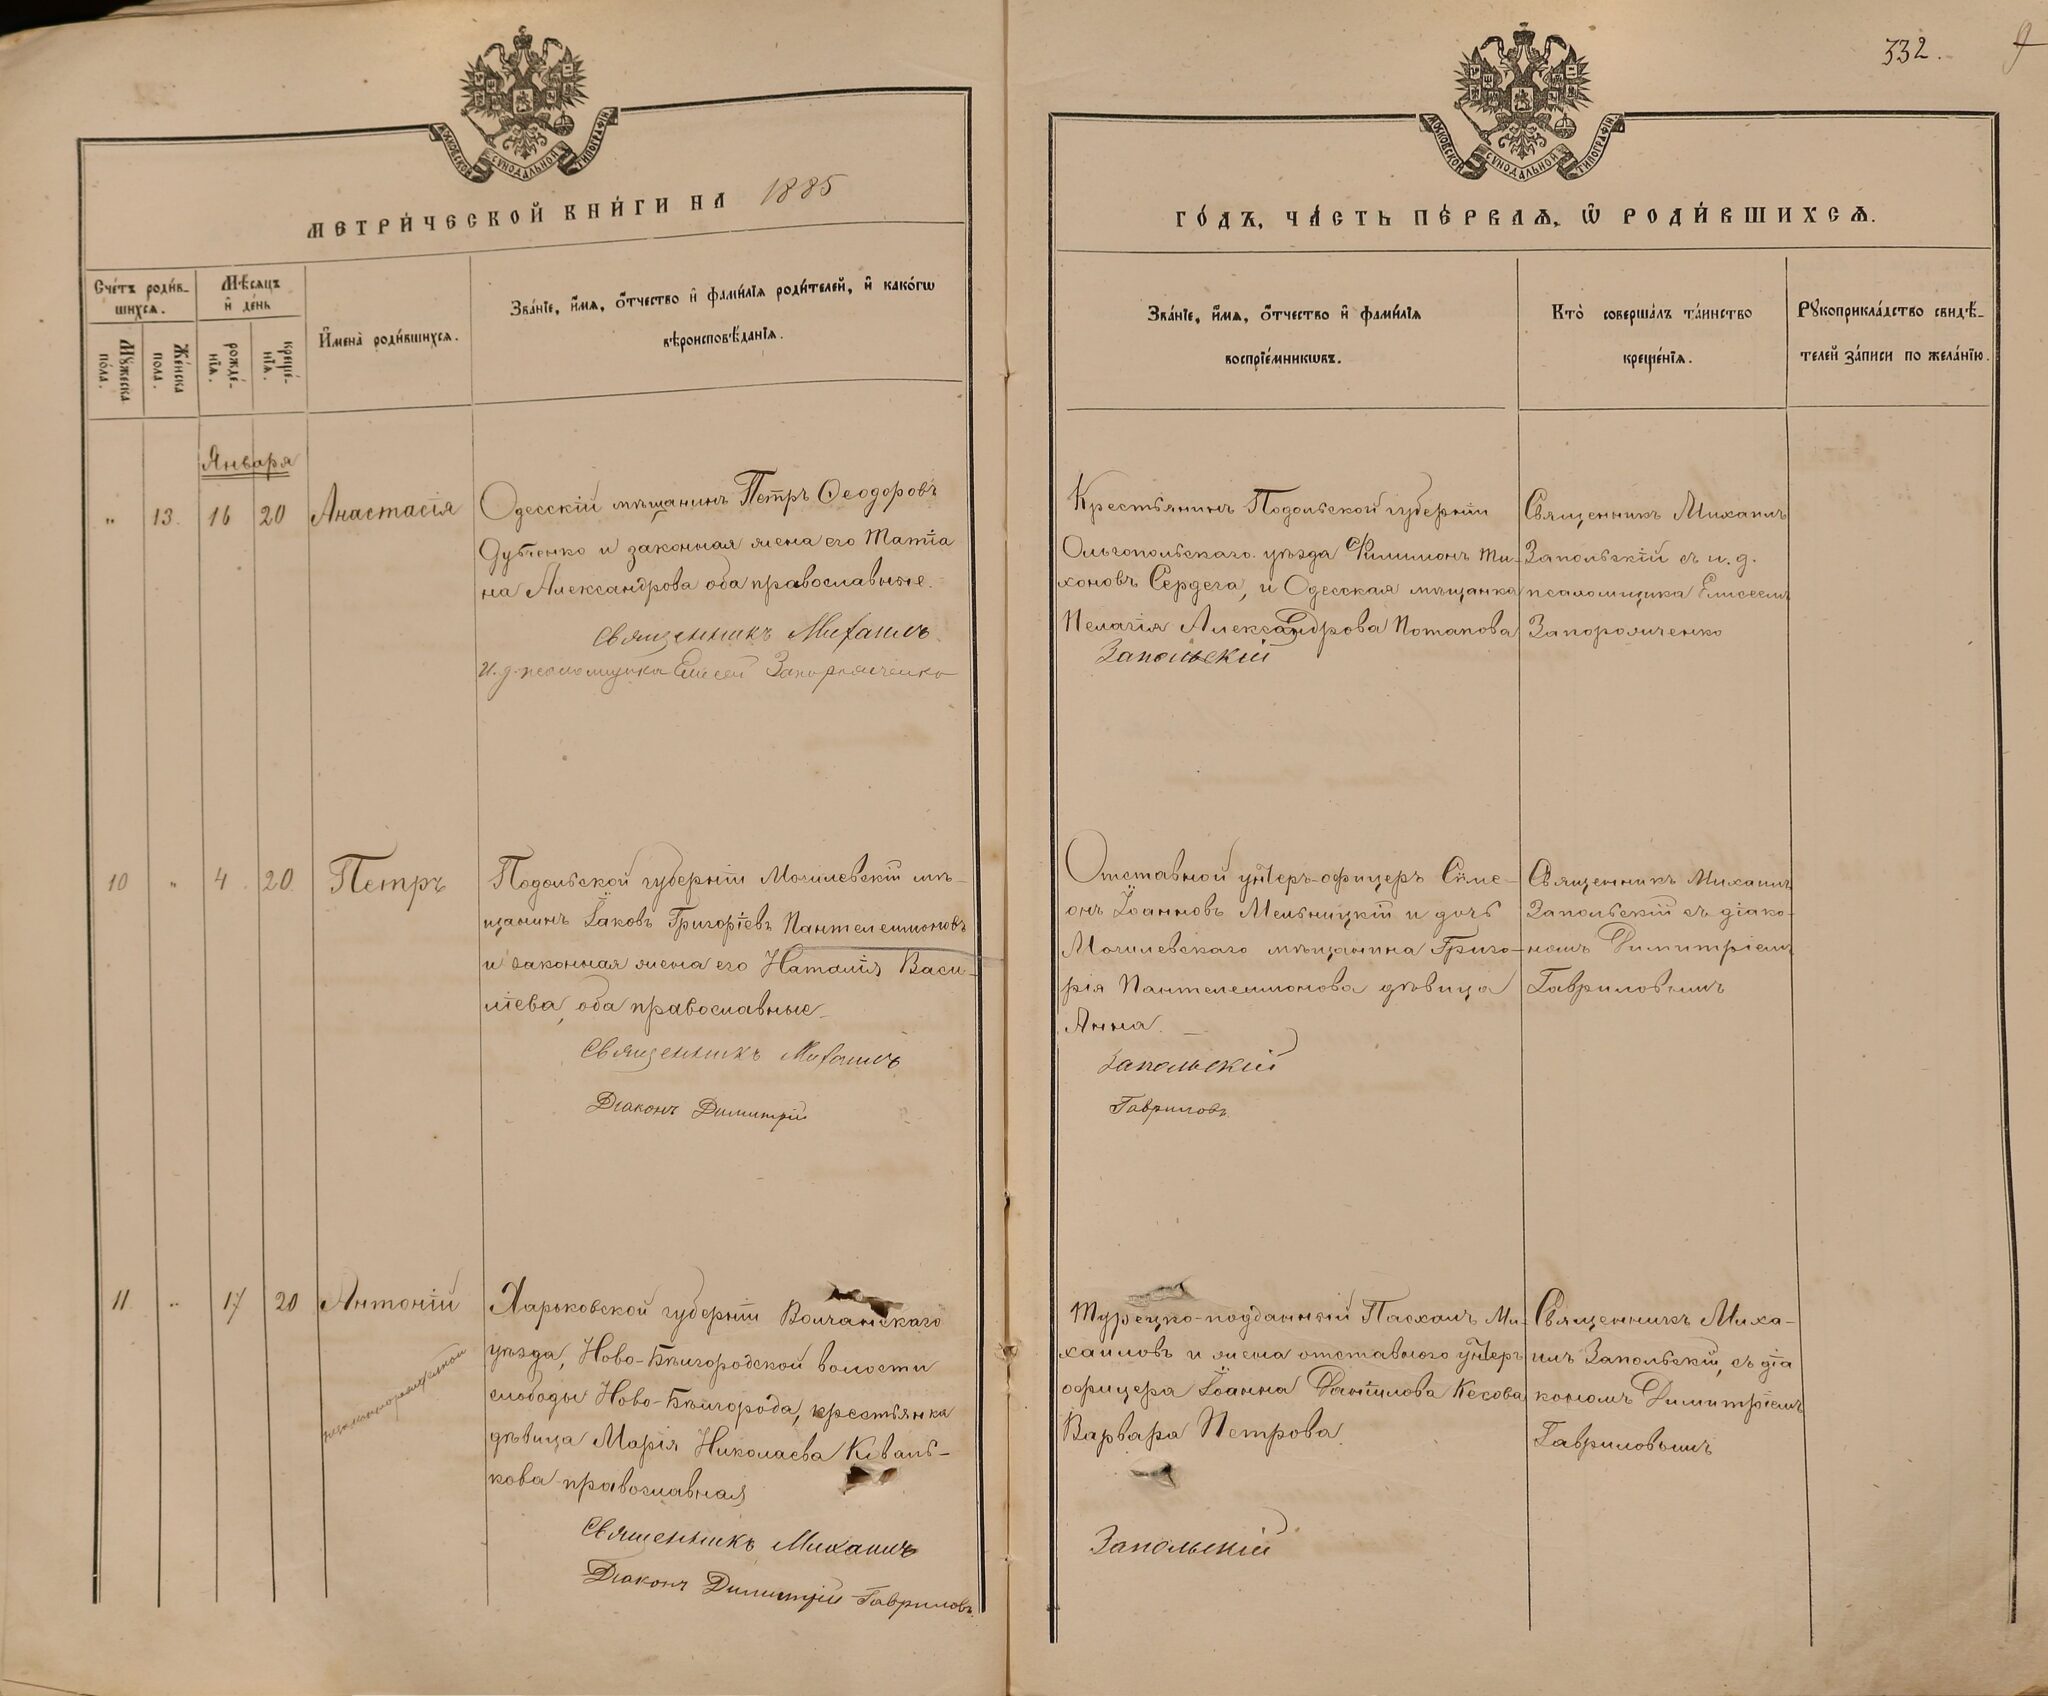 332.
МОСКОВСКОЙ СѴНОДАЛЬНОЙ ТИПОГРАФІИ
МОСКОВСКОЙ СѴНОДАЛЬНОЙ ТИПОГРАФІИ
МЕТРИ́ЧЕСКОЙ КНИ́ГИ НА 1885
ГО́ДЪ, ЧА́СТЬ ПЕ́РВАѦ, Ѡ҆ РОДИ́ВШИХСѦ.
Сче́тъ роди́в-
шихсѧ.
Мꙋ́жеска
по́ла.
Же́нска
по́ла.
Мѣ́сѧцъ
и҆ де́нь
рожде́-
нїѧ.
креще́-
нїѧ.
И҆мена̀ роди́вшихсѧ.
Зва́нїе, и҆́мѧ, ѻ҆́тчество и҆ фами́лїѧ роди́телей, и҆ како́гѡ
вѣроисповѣ́данїѧ.
Зва́нїе, и҆́мѧ, ѻ҆́тчество и҆ фами́лїѧ
воспрїе́мникѡвъ.
Кто̀ соверша́лъ та́инство
креще́нїѧ.
Рꙋкоприкла́дство свидѣ́-
телей за́писи по жела́нїю.
Января
" 13. 16 20 Анастасія
Одесскій мѣщанинъ Петръ Ѳеодоровъ
Дубченко и законная жена его Татіа
на Александрова оба православные.
Священникъ Михаилъ
И. д. псаломщика Елисей Запорожченко
Крестьянинъ Подольской губерніи
Ольгопольскаго уѣзда Филимонъ Ти-
хоновъ Сердега, и Одесская мѣщанка
Пелагія Александрова Потапова
Запольскій
Священникъ Михаилъ
Запольскій съ и. д.
псаломщика Елисеемъ
Запорожченко
10 " 4 20 Петръ
Подольской губерніи Могилевскій мѣ-
щанинъ Іаковъ Григоріевъ Пантелеимоновъ
и законная жена его Наталія Васи-
ліева, оба православные
Священникъ Михаилъ
Діаконъ Димитрій
Отставной унтеръ-офицеръ Симе-
онъ Іоанновъ Мельницкій и дочь
Могилевскаго мѣщанина Григо-
рія Пантелеимонова дѣвица
Анна.
Запольскій
Гавриловъ
Священникъ Михаилъ
Запольскій съ діако-
номъ Димитріемъ
Гавриловымъ
11 " 17 20 Антоній
Харьковской губерніи Волчанскаго
уѣзда, Ново-Бѣлгородской волости
слободы Ново-Бѣлгорода, крестьянка
дѣвица Марія Николаева
кова православная
Священникъ Михаилъ
Діаконъ Димитрій Гавриловъ.
Турецко-подданный Пасхалъ Ми-
хаиловъ и жена отставного унтеръ
офицера Іоанна Даніилова Кекова
Варвара Петрова
Запольскій
Священникъ Миха-
илъ Запольскій, съ діа
кономъ Димитріемъ
Гавриловымъ